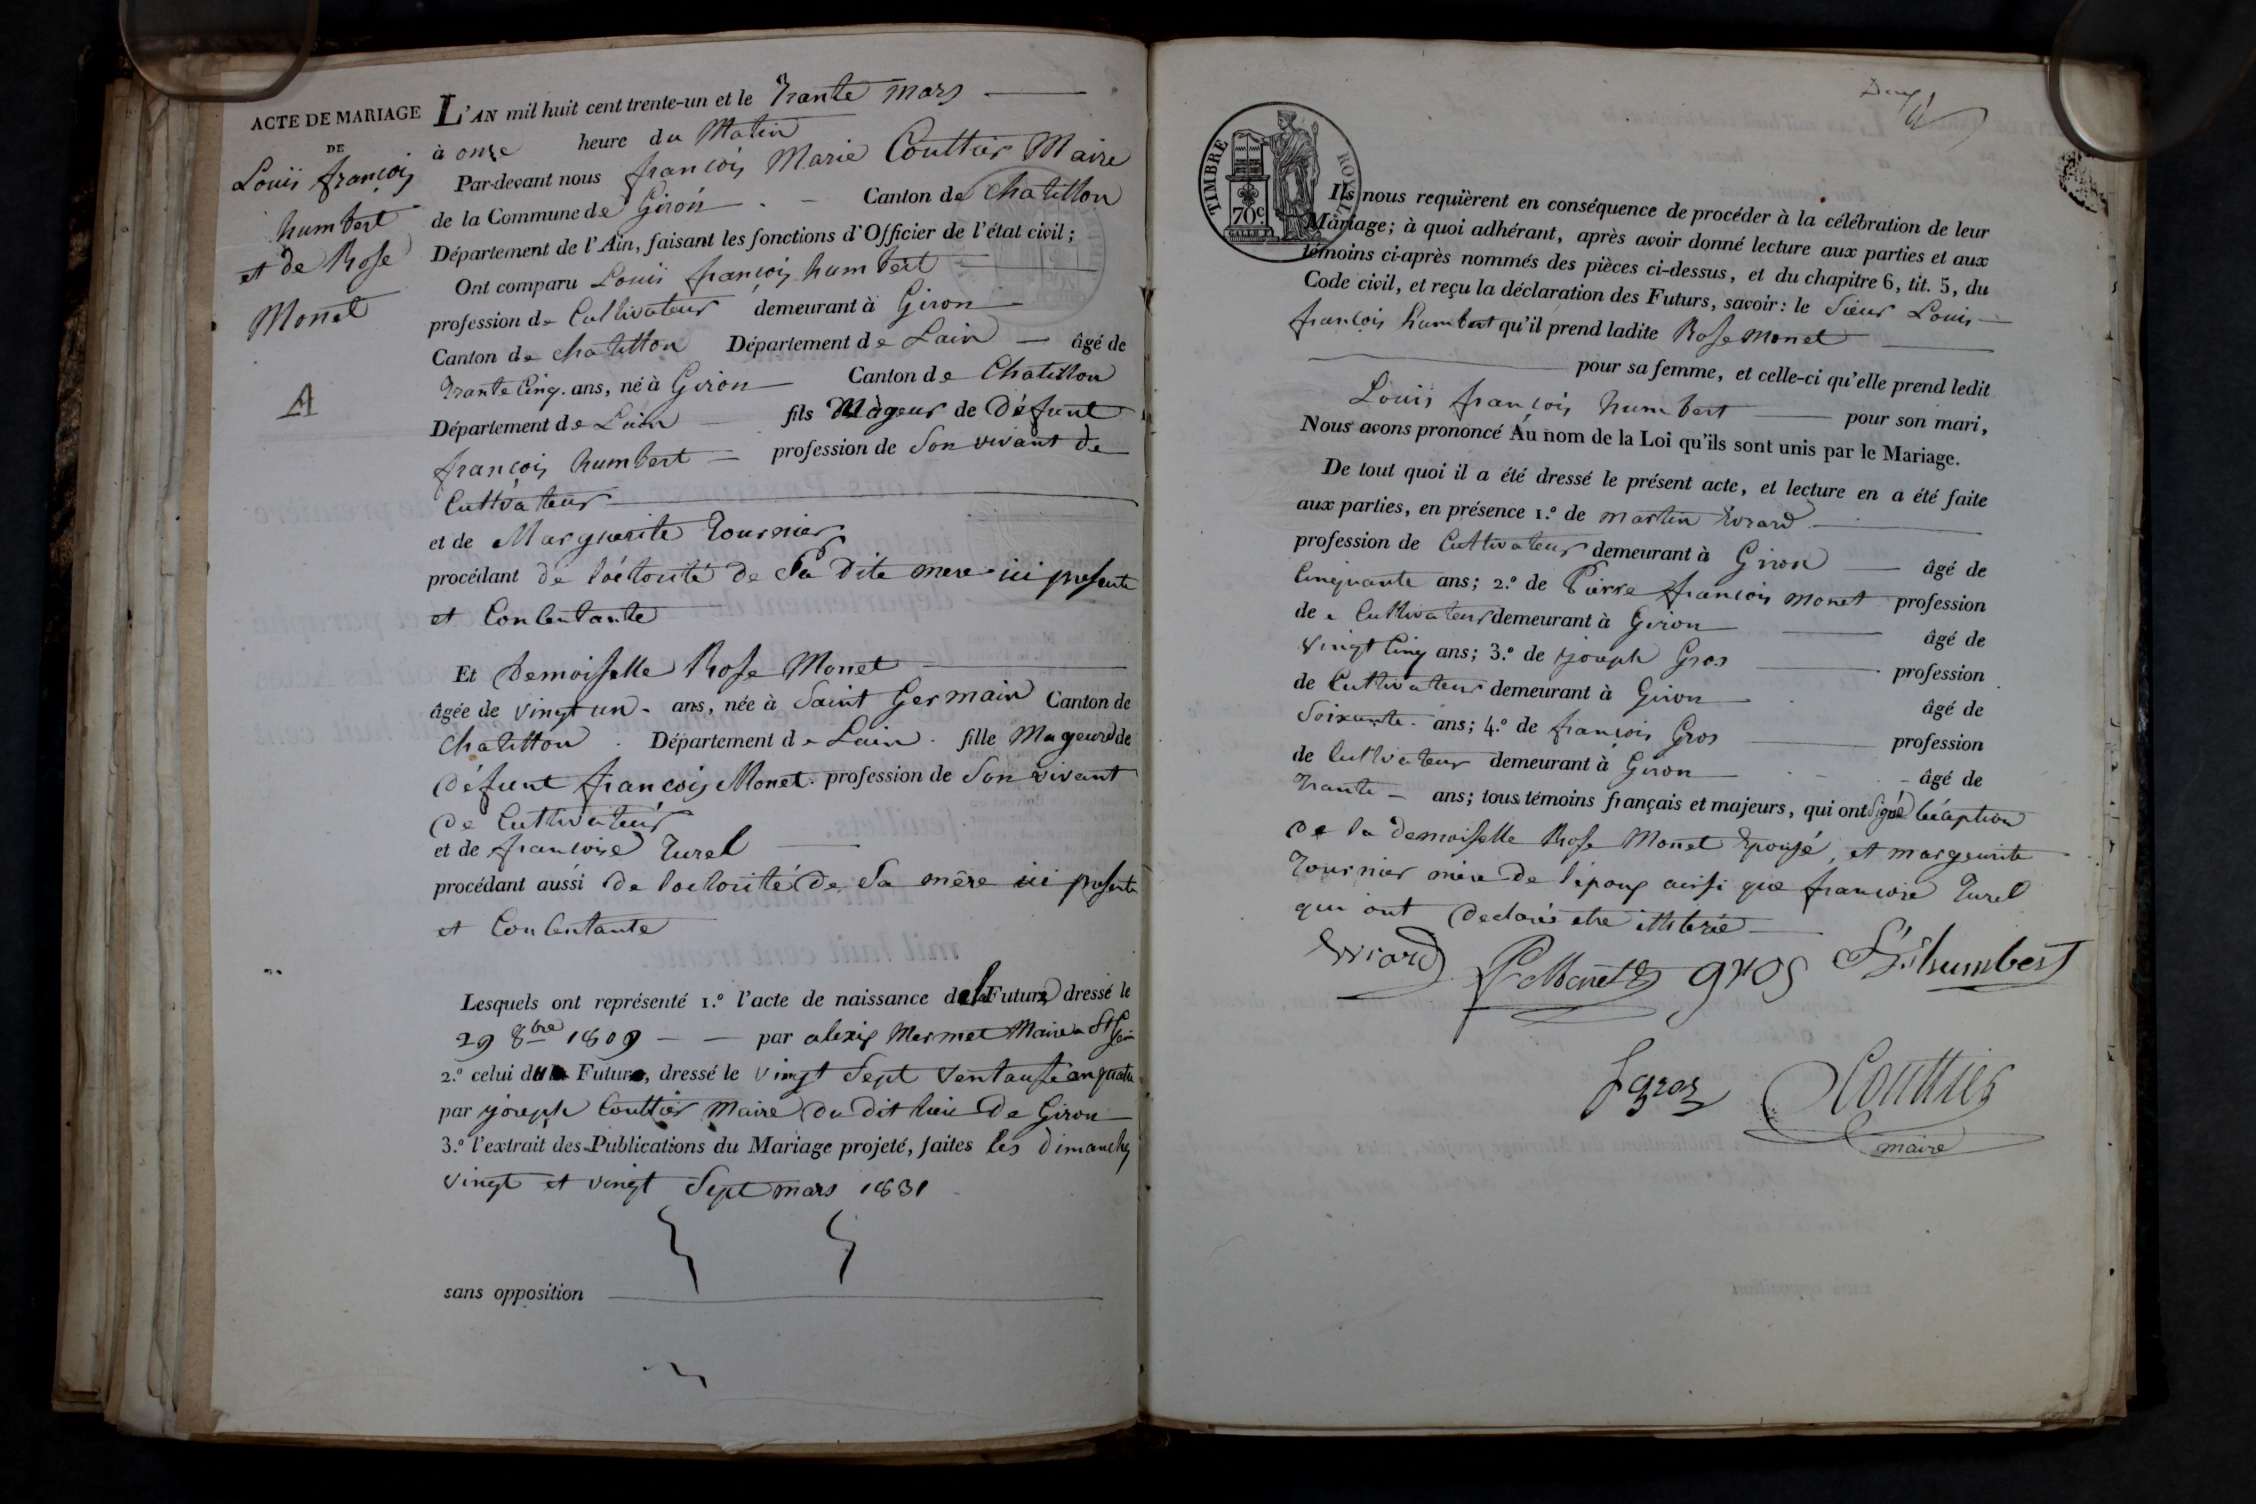 ACTE DE MARIAGE
DE
Louis françois
humbert
et de Rose
Monet
A
L'AN mil huit cent trente-un et le Trante mars
à onze heure du Matin
Par-devant nous françois Marie Couttier Maire
de la Commune de Giron Canton de Chatillon
Département de l'Ain, faisant les fonctions d'Officier de l'état civil;
Ont comparu Louis françois humbert
profession de Cultivateur demeurant à Giron
Canton de chatillon Département de Lain âgé de
Trante Cinq ans, né à Giron Canton de Chatillon
Département de Lain fils Mageur de Défunt
françois humbert profession de Son vivant de
Cultivateur
et de Marguerite Tournier
procédant de loctorité de Sa Dite mere ici presente
et Consentante
Et Demoiselle Rose Monet
âgée de vingt un ans, née à Saint Germain Canton de
Chatillon Département de Lain fille Mageure de
Défunt françois Monet profession de Son vivant
De Cultivateur
et de francoise Turel
procédant aussi de loctorité de Sa mère ici presente
et Consentante
Lesquels ont représenté 1.º l'acte de naissance de la Future dressé le
29 8bre 1809 par alexis Mermet Maire a St Ger
2.º celui du Futur, dressé le vingt Sept Ventause an quatre
par joseph Couttier Maire du dit lieu De Giron
3.º l'extrait des Publications du Mariage projeté, faites les dimanches
vingt et vingt Sept mars 1831
sans opposition
TIMBRE ROYAL
70c
Ils nous requièrent en conséquence de procéder à la célébration de leur
Mariage; à quoi adhérant, après avoir donné lecture aux parties et aux
témoins ci-après nommés des pièces ci-dessus, et du chapitre 6, tit. 5, du
Code civil, et reçu la déclaration des Futurs, savoir: le Sieur Louis
françois humbert qu'il prend ladite Rose Monet
pour sa femme, et celle-ci qu'elle prend ledit
Louis françois humbert pour son mari,
Nous avons prononcé Au nom de la Loi qu'ils sont unis par le Mariage.
De tout quoi il a été dressé le présent acte, et lecture en a été faite
aux parties, en présence 1.º de martin Evrard
profession de Cultivateur demeurant à Giron âgé de
Cinquante ans; 2.º de Pierre françois monet profession
de Cultivateur demeurant à Giron âgé de
vingt Cinq ans; 3.º de joseph Gros profession
de Cultivateur demeurant à Giron âgé de
Soixante ans; 4.º de françois Gros profession
de Cultivateur demeurant à Giron âgé de
Trante ans; tous témoins français et majeurs, qui ont Signé a léception
de la demoiselle Rose Monet Epouse, et margeurite
Tournier mère De l'époux ainsi que francoise Turel
qui ont Declaré etre illiterée
Evrard P f Monet gros L f humbert
f gros Couttier
maire